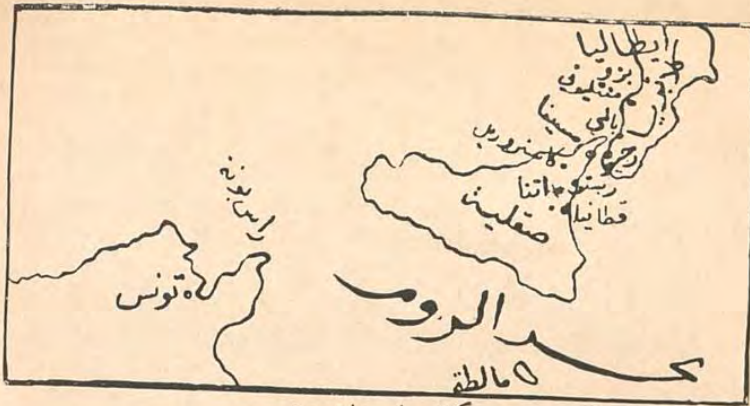 ايطاليا
بزو
منتليوني
بالمي
مسينا
رجو
ربستو
اتنا
قطانيا
صقلية
راس بونه
تونس
بحر الروم
مالطة